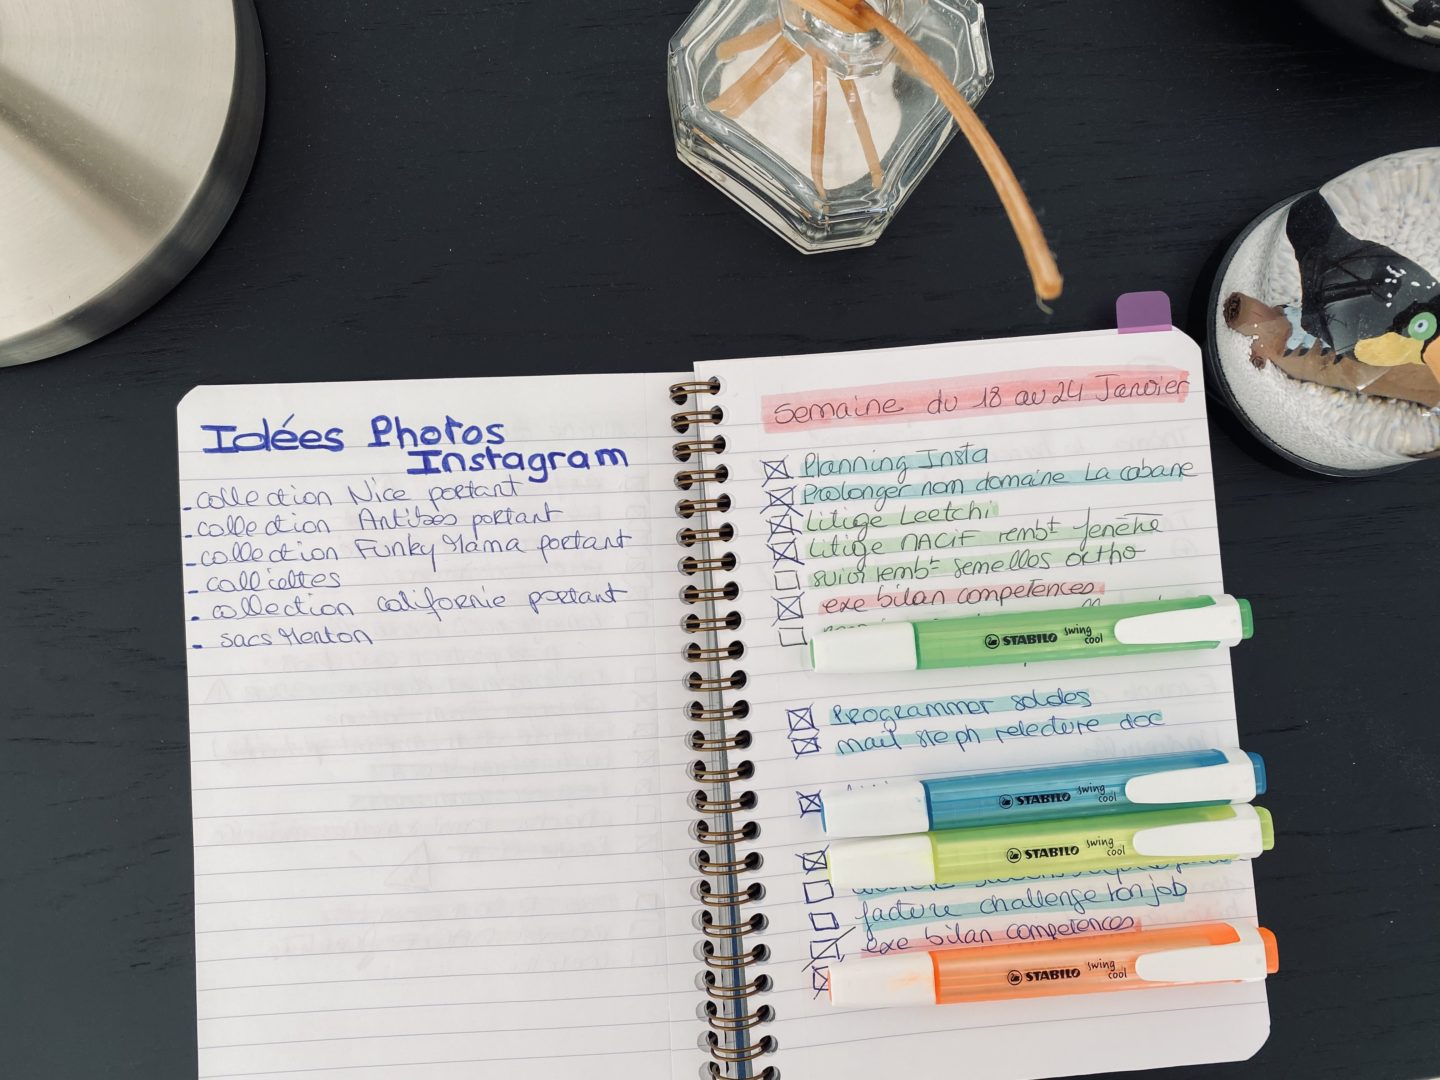 Idées Photos
Instagram
- collection Nice portant
- collection Antibes portant
- collection Funky Mama portant
- collection californie portant
- sacs Menton
Semaine du 18 au 24 Janvier
Planning Insta
Prolonger nom domaine La cabane
Litige Leetchi
Litige MACIF rembt fenêtre
suivi rembt semelles ortho
exe bilan competences
STABILO swing cool
Programmer soldes
mail steph relecture doc
STABILO swing cool
STABILO swing cool
facture challenge ton job
exe bilan competences
STABILO swing cool